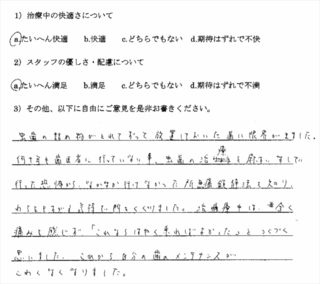 1）治療中の快適さについて
a.たいへん快適 b.快適 c.どちらでもない d.期待はずれで不快
2）スタッフの優しさ・配慮について
a.たいへん満足 b.満足 c.どちらでもない d.期待はずれで不満
3）その他、以下に自由にご意見を是非お書きください。
虫歯の詰め物がとれてずっと放置しておいた歯に限界がきました。
何年も歯医者に行っていない事、虫歯の治療も
行った恐怖から、なかなか行けなかった所無痛麻酔法を知り、
わらをもすがる気持で門をくぐりました。治療中は、全く
痛みも感じず「これならはやく来ればよかった」とつくづく
思いました。これから自分の歯のメンテナンスが
こわくなくなりました。